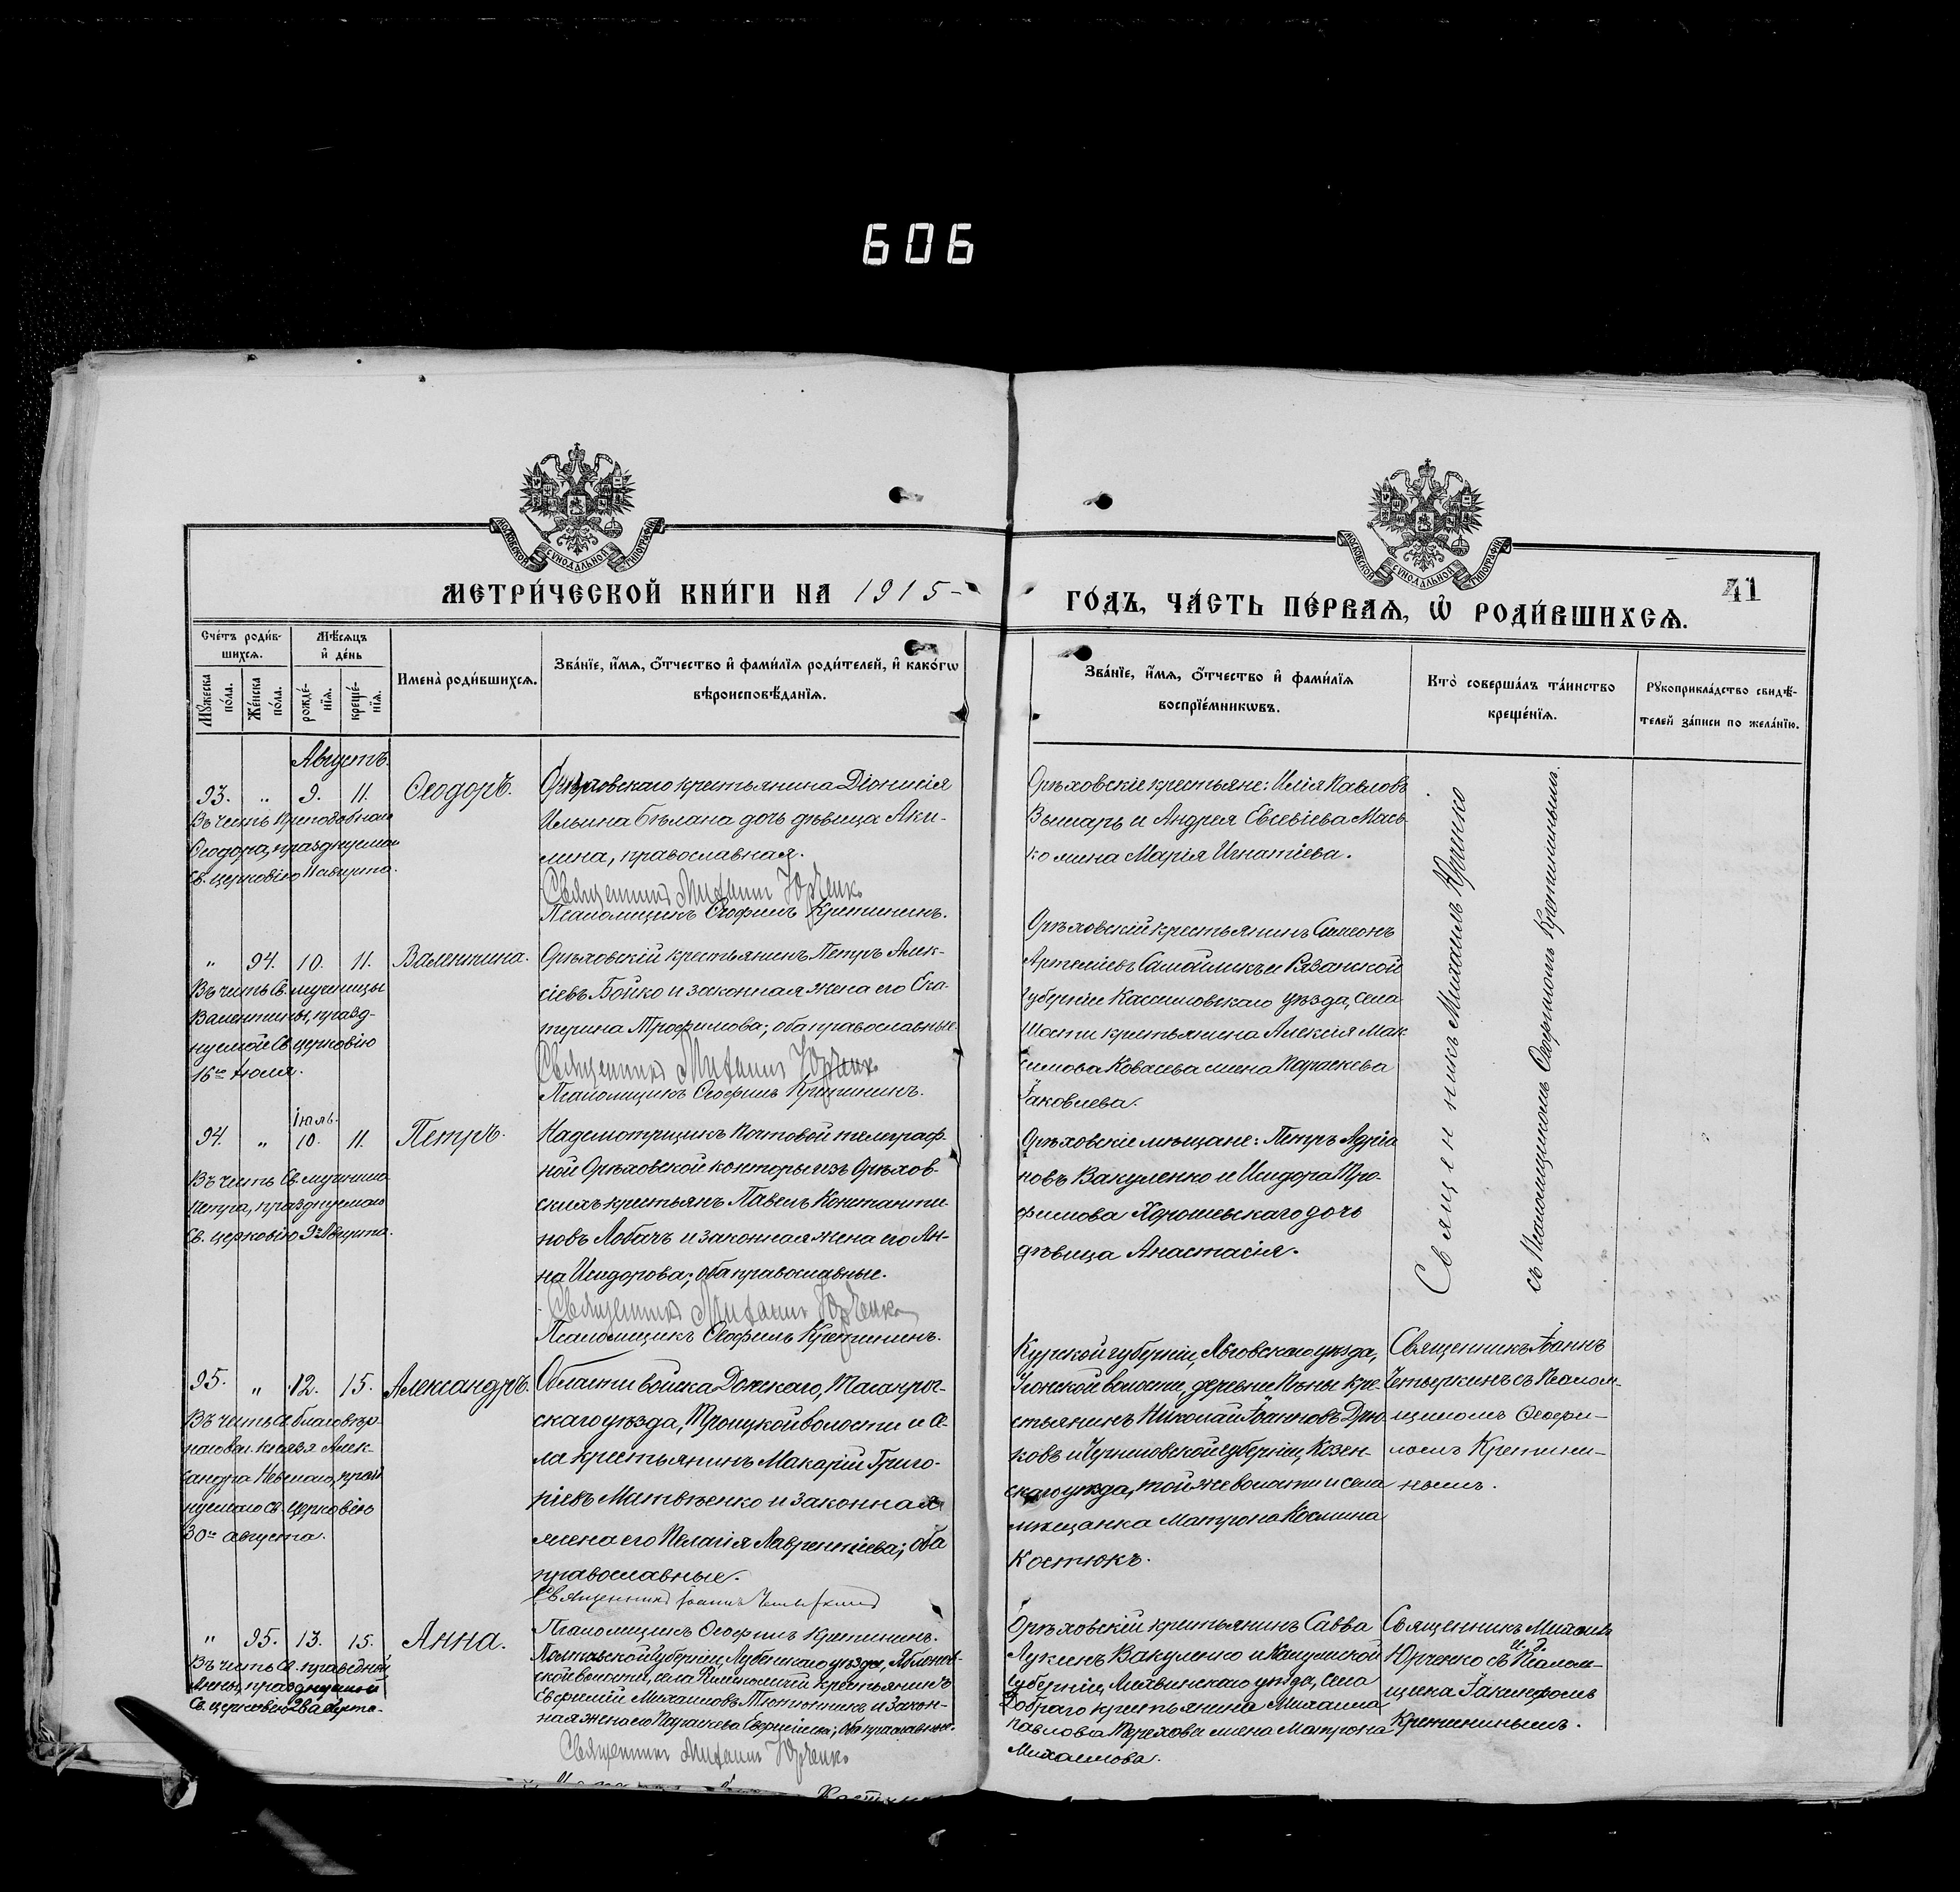 606
МОСКОВСКОЙ СУНОДАЛЬНОЙ ТИПОГРАФІИ
МОСКОВСКОЙ СУНОДАЛЬНОЙ ТИПОГРАФІИ
МЕТРИ́ЧЕСКОЙ КНИ́ГИ НА 1915
ГО́ДЪ, ЧА́СТЬ ПЕ́РВАѦ, Ѡ РОДИ́ВШИХСѦ.
41
Сче́тъ роди́в-
шихсѧ.
Мѣ́сѧцъ
и҆ де́нь
Мꙋ́жеска
по́ла.
Же́нска
по́ла.
рожде́-
нїѧ.
креще́-
нїѧ.
Имена̀ роди́вшихсѧ.
Зва́нїе, и҆́мѧ, ѻ҆́тчество и҆ фами́лїѧ роди́телей, и҆ како́гѡ
вѣроисповѣ́данїѧ.
Зва́нїе, и҆́мѧ, ѻ҆́тчество и҆ фами́лїѧ
воспрїе́мникѡвъ.
Кто̀ соверша́лъ та́инство
креще́нїѧ.
Рꙋкоприкла́дство свидѣ́-
телей за́писи по жела́нїю.
Августъ.
93. " 9. 11. Ѳеодоръ.
Въ честь Преподобнаго
Ѳеодора, празднуемаго
Св. церковію Августа.
Орѣховскаго крестьянина Діонисія
Ильина Бѣлана дочь дѣвица Аки-
лина, православная.
Священникъ Михаилъ Юрченко
Псаломщикъ Ѳеофилъ Кретининъ.
Орѣховскіе крестьяне: Илія Павловъ
и Андрея Евсевіева Мась-
ко жена Марія Игнатіева.
Священникъ Михаилъ Юрченко
съ Псаломщикомъ Ѳеофиломъ Кретининымъ.
" 94. 10. 11. Валентина.
Въ честь Св. мученицы
Валентины, празд-
нуемой Св. церковію
16го Іюля.
Орѣховскій крестьянинъ Петръ Алек-
сіевъ Бойко и законная жена его Ека-
терина Трофимова; оба православные.
Священникъ Михаилъ Юрченко
Псаломщикъ Ѳеофилъ Кретининъ.
Орѣховскій крестьянинъ Симеонъ
Артеміевъ Самойликъ и Рязанской
Губерніи Кассимовскаго уѣзда, села
крестьянина Алексія Мак-
симова жена Параскева
Іаковлева.
Іюль.
94. " 10. 11. Петръ.
Въ честь Св. мученика
Петра, празднуемаго
Св. церковію 9го Августа.
Надсмотрщикъ почтовой телеграф-
ной Орѣховской конторы изъ Орѣхов-
скихъ крестьянъ Павелъ Константи-
новъ Лобачъ и законная жена его Ан-
на Исидорова; оба православные.
Священникъ Михаилъ Юрченко
Псаломщикъ Ѳеофилъ Кретининъ.
Орѣховскіе мѣщане: Петръ Адріа-
новъ Вакуленко и Исидора Тро-
фимова Хорошевскаго дочь
дѣвица Анастасія.
95. " 12. 15. Александръ.
Въ честь Св. благовѣр-
наго вел. князя Алек-
сандра Невскаго, празд-
нуемаго Св. церковію
30го августа.
Области войска Донскаго, Таганрог-
скаго уѣзда, Троицкой волости и се-
ла крестьянинъ Макарій Григо-
ріевъ Матвѣенко и законная
жена его Пелагія Лаврентіева; оба
православные.
Священникъ Іоаннъ Четыркинъ
Псаломщикъ Ѳеофилъ Кретининъ.
Курской губерніи, Льговскаго уѣзда,
Угонской волости, деревни Пѣны кре-
стьянинъ Николай Іоанновъ Дрю-
ковъ и Черниговской губерніи, Козел-
скаго уѣзда, той же волости и села
мѣщанка Матрона Космина
Костюкъ.
Священникъ Іоаннъ
Четыркинъ съ Псалом-
щикомъ Ѳеофи-
ломъ Кретини-
нымъ.
" 95. 13. 15. Анна.
Въ честь Св. праведной
Анны, празднуемой
Св. церковію
Полтавской губерніи, Лубенскаго уѣзда, Яблонов-
ской волости, села крестьянинъ
Евфимій Михаиловъ Тютюнникъ и закон-
ная жена его Параскева; оба православные.
Священникъ Михаилъ Юрченко
Орѣховскій крестьянинъ Савва
Лукинъ Вакуленко и Калужской
губерніи, Лихвинскаго уѣзда, села
Добраго крестьянина Михаила
Павлова Терехова жена Матрона
Михаилова.
Священникъ Михаилъ
Юрченко съ и. д. Псалом-
щика Іакинфомъ
Кретининымъ.